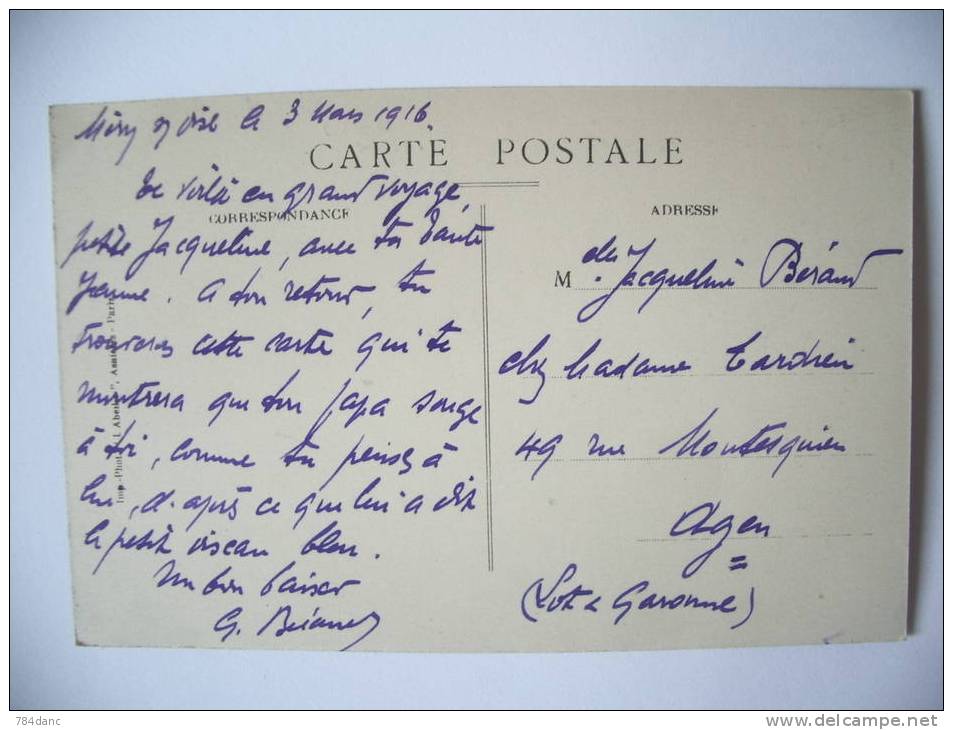 Méry s/ Oise le 3 Mars 1916
CARTE POSTALE
Te voilà en grand voyage,
CORRESPONDANCE
petite Jacqueline, avec ta Tante
Jeanne. A ton retour, tu
trouveras cette carte qui te
montrera que ton papa songe
à toi, comme tu penses à
lui, d'après ce que lui a dit
le petit oiseau bleu.
Un bon baiser
G. Béraud
ADRESSE
M delle Jacqueline Béraud
chez Madame Tardieu
49 rue Montesquieu
Agen
(Lot & Garonne)
Imp.-Phot. "L'Abeille", Asnières - Paris
784danc
www.delcampe.net